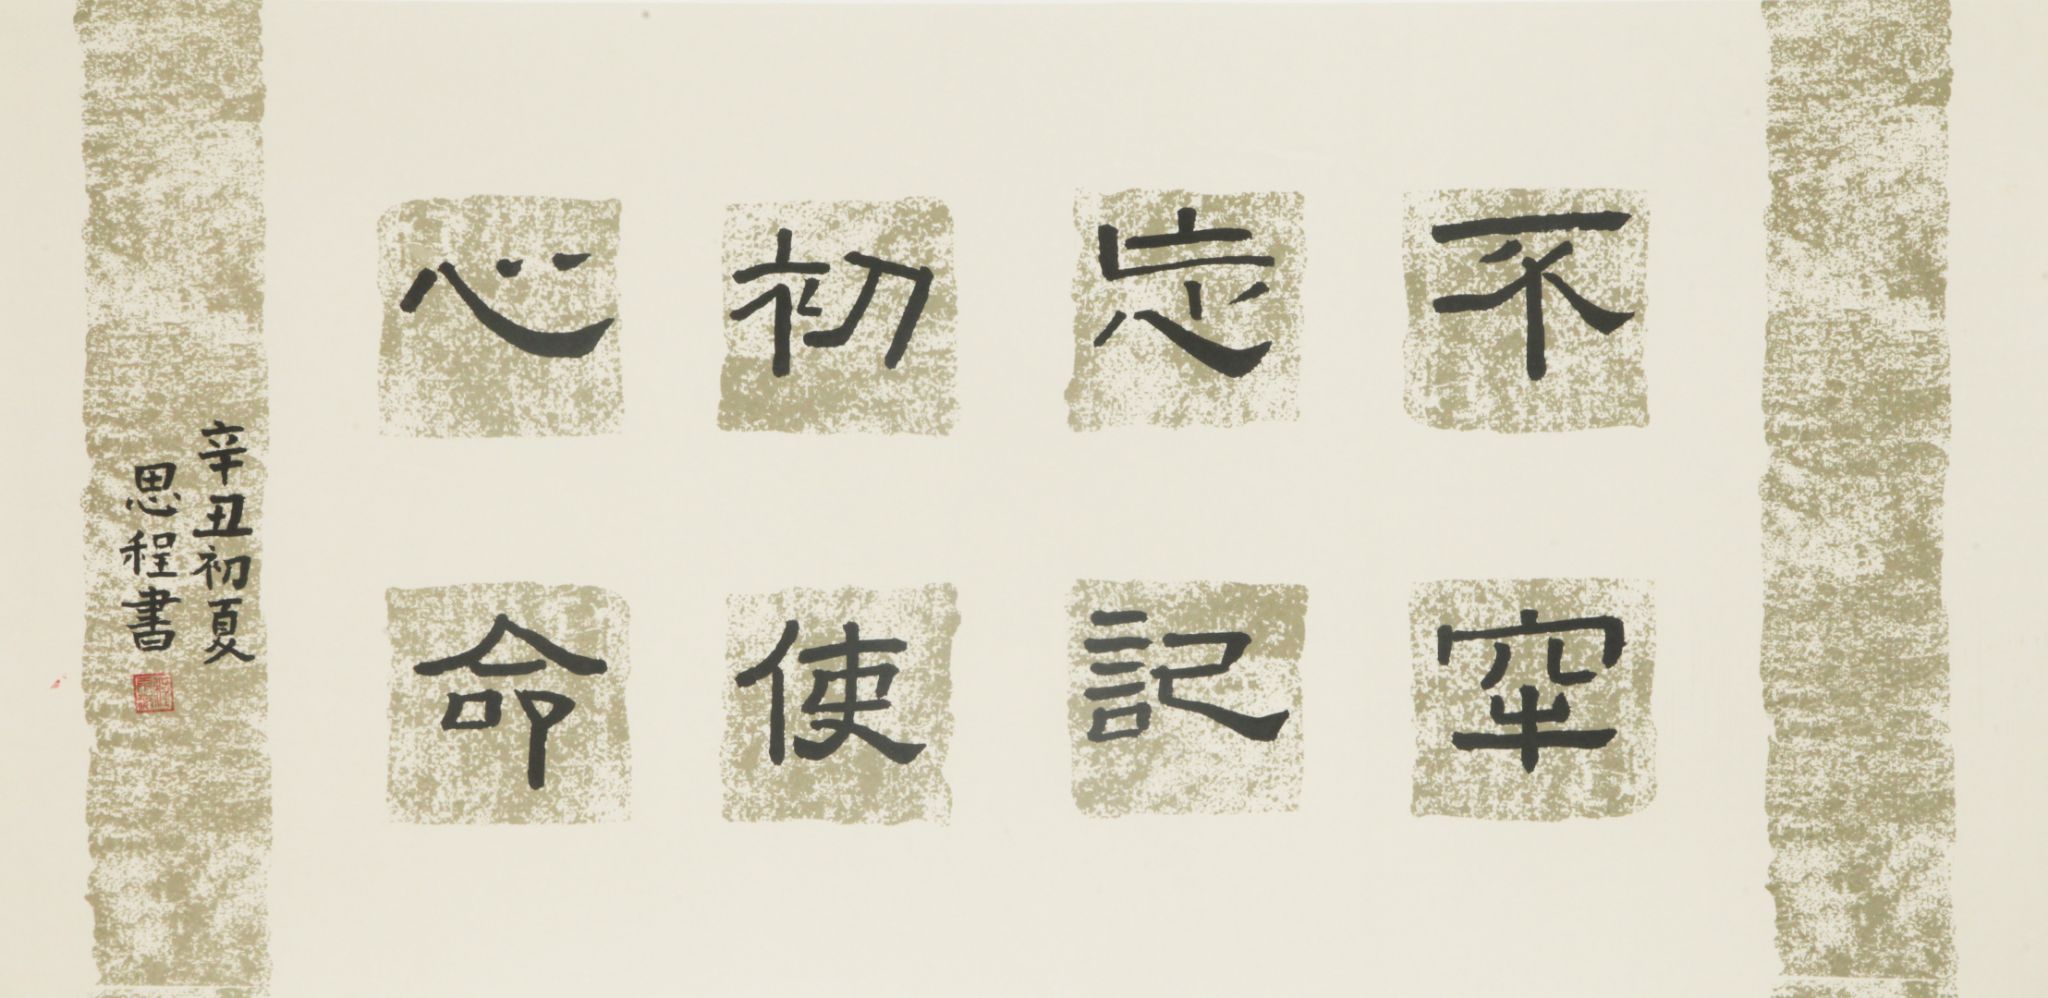 不忘初心
牢記使命
辛丑初夏
思程書